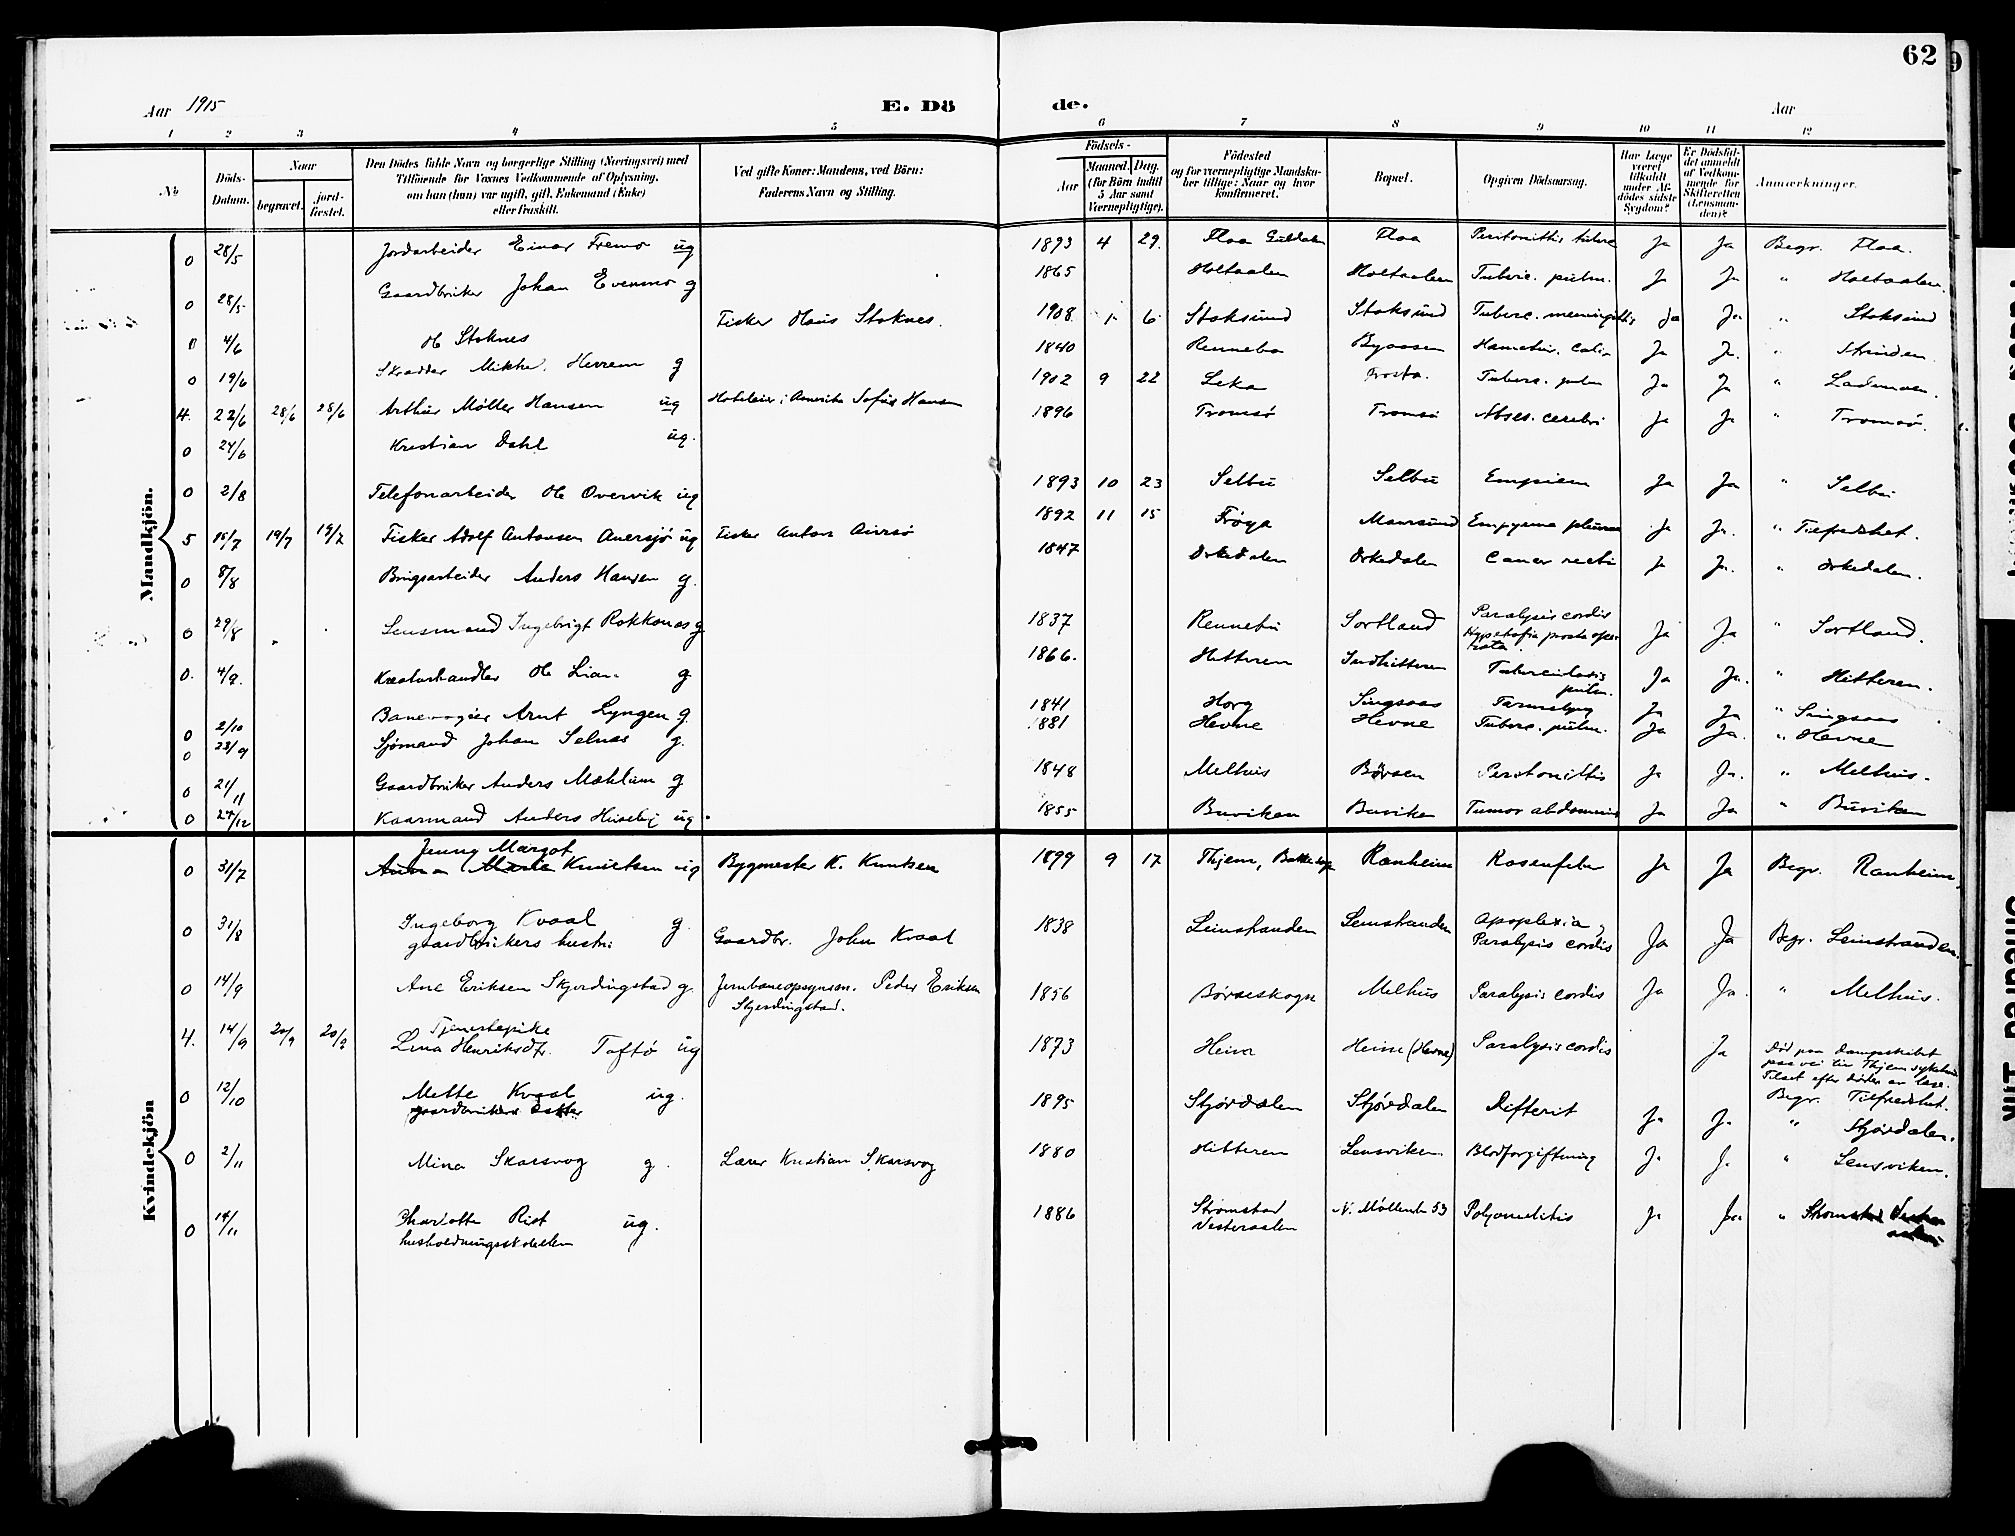 62
Aar 1915 E. Dö de. Aar
1 2 3 4 5 6 7 8 9 10 11 12
No Döds-Datum. Naar begravet. jord-fæstet. Den Dödes fulde Navn og borgerlige Stilling (Næringsvei) med Tilföiende for Voxnes Vedkommende af Oplysning, om han (hun) var ugift, gift, Enkemand (Enke) eller fraskilt. Ved gifte Koner: Mandens, ved Börn: Faderens Navn og Stilling. Födsels- Aar Maaned. Dag. (for Börn indtil 5 Aar samt Værnepligtige). Födested og for værnepligtige Mandskaber tillige: Naar og hvor konfirmeret. Bopæl. Opgiven Dödsaarsag. Har Læge været tilkaldt under Afdödes sidste Sygdom? Er Dödsfaldet anmeldt af Vedkommende for Skifteretten (Lensmanden)? Anmærkninger.
Mandkjön.
0 28/5 Jordarbeider Einar Fremo ug 1893 4 29. Flaa Guldalen Flaa Peritonittis tuberc Ja Ja Begr. Flaa.
0 28/5 Gaardbruker Johan Evenmo g 1865 Holtaalen Holtaalen Tuberc. pulm. Ja Ja " Holtaalen.
0 4/6 Ole Stoknes Fisker Hans Stoknes. 1908 1 6 Stoksund Stoksund Tuberc. meningittis Ja Ja " Stoksund
0 19/6 Skrædder Mikkel Herrem g 1840 Rennebu Byaasen Ja Ja " Strinden.
4. 22/6 28/6 28/6 Arthur Möller Hansen ug Hoteleier i Amerika Sofus Hansen 1902 9 22 Leka Frosta. Tuberc. pulm Ja Ja " Lademoen.
0 24/6 Kristian Dahl ug. 1896 Tromsö Tromsö Absces. cerebri Ja Ja " Tromsö.
0 2/8 Telefonarbeider Ole Overvik ug 1893 10 23 Selbu Selbu Empiem Ja Ja " Selbu
5 15/7 19/7 19/7 Fisker Adolf Antonsen Auersjö ug Fisker Anton 1892 11 15 Fröya Mausund Empyema pleurae Ja Ja. " Tilfredshet.
0 8/8 Brugsarbeider Anders Hansen g. 1847 Orkedalen Orkedalen Cancer recti Ja Ja. " Orkedalen.
0 29/8 Lensmand Ingebrigt Rokkones g 1837 Rennebu Sortland Paralysis cordis Ja Ja " Sortland.
0. 4/9. Kreaturhandler Ole Lian g. 1866. Hitteren Indhitteren Tuberculosis pulm. Ja Ja. " Hitteren.
0 2/10 Banevogter Arnt Lyngen g. 1841 Horg Singsaas Ja Ja " Singsaas
0 23/9 Sjömand Johan Selnæs g. 1881 Hevne Hevne Tuberc. pulm. Ja Ja. " Hevne
0 21/11 Gaardbruker Anders Mæhlum g 1848 Melhus Börsen Peritonittis Ja Ja. " Melhus.
0 27/12 Kaarmand Anders Huseby ug. 1855 Buviken Buviken Tumor abdominis Ja Ja " Buviken
Kvindekjön
0 31/7 Jenny Margot
Anna Marie Knutsen ug Bygmester K. Knutsen 1899 9 17 Thjem, Ranheim Rosenfeber Ja Ja Begr. Ranheim.
0 31/8 Ingeborg Kvaal g. gaardbrukers hustru Gaardbr. John Kvaal 1838 Leinstranden Leinstranden Apoplexia, Paralysis cordis Ja Ja Begr. Leinstranden.
0 14/9 Ane Eriksen Skjerdingstad g. Jernbaneopsynsm. Peder Eriksen Skjerdingstad. 1856 Börseskogn Melhus Paralysis cordis Ja Ja " Melhus.
4. 14/9 20/9 20/9 Tjenestepike
Lina Henriksdtr. Taftö ug 1873 Heine (Hevne) Paralysis cordis Ja Död paa Dampskibet paa vei til Thjem sykehus Tilset efter döden av læge. Begr. Tilfredshet.
0 12/10 Mette Kvaal ug. gaardbrukers datter 1895 Stjördalen Stjördalen Difterit Ja Ja " Stjördalen.
0 2/11 Mina Skarsvog g. Lærer Kristian Skarsvog 1880 Hitteren Lensviken. Blodforgiftning Ja Ja " Lensviken.
0 14/11 Charlotte Rist ug. 1886 Strömstad Vesteraalen N. Möllenb. 53 Polyomielitis Ja Ja " Strömstad